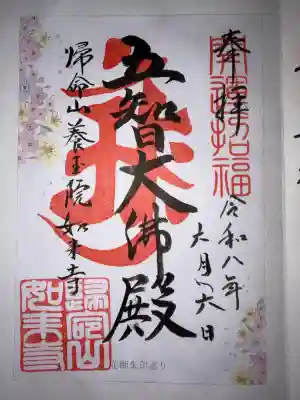 奉拝
開運招福
令和八年
六月六日
五智大佛殿
帰命山養玉院如来寺
歸命山
如来寺
御朱印巡り